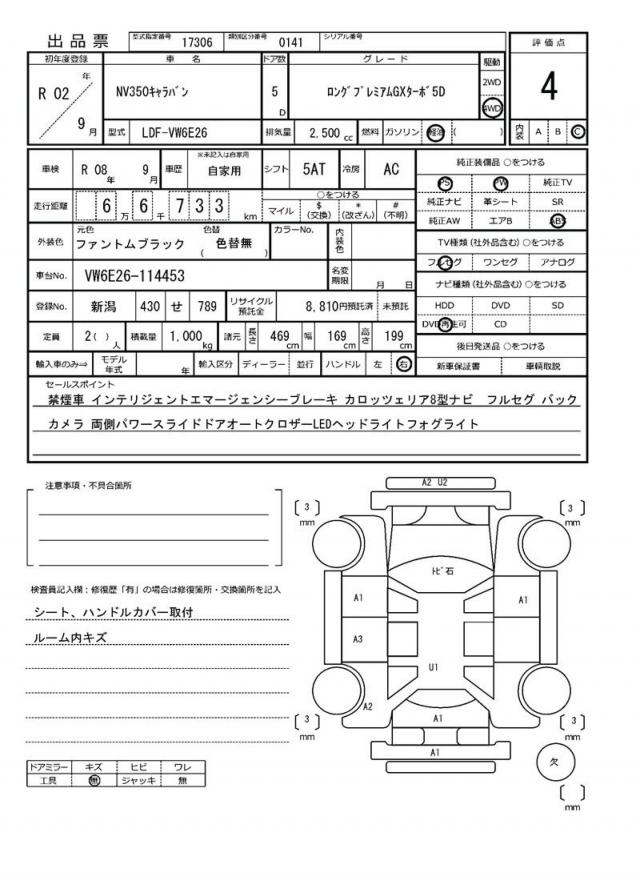 出品票 型式指定番号 17306 類別区分番号 0141 シリアル番号
初年度登録 車名 ドア数 グレード 駆動 評価点
R 02 年 9 月 NV350ｷｬﾗﾊﾞﾝ 5 D ﾛﾝｸﾞﾌﾟﾚﾐｱﾑGXﾀｰﾎﾞ5D 2WD 4WD 4
型式 LDF-VW6E26 排気量 2,500 cc 燃料 ガソリン 軽油 ( ) 内装 A B C
車検 R 08 年 9 月 車歴 ※未記入は自家用 自家用 シフト 5AT 冷房 AC
純正装備品 ○をつける
PS PW 純正TV
純正ナビ 革シート SR
純正AW エアB ABS
走行距離 6 万 6 千 7 3 3 km
○をつける
マイル $ (交換) * (改ざん) # (不明)
外装色 元色 ファントムブラック 色替 ( 色替無 ) カラーNo. 内装色
TV種類 (社外品含む) ○をつける
フルセグ ワンセグ アナログ
車台No. VW6E26-114453 名変期限 月 日
ナビ種類 (社外品含む) ○をつける
登録No. 新潟 430 せ 789 リサイクル預託金 8,810円預託済 未預託
HDD DVD SD
DVD再生可 CD
定員 2( ) 人 積載量 1,000 kg 諸元 長さ 469 cm 幅 169 cm 高さ 199 cm
後日発送品 ○をつける
輸入車のみ⇒ モデル年式 年 輸入区分 ディーラー 並行 ハンドル 左 右
新車保証書 車輌取説
セールスポイント
禁煙車 インテリジェントエマージェンシーブレーキ カロッツェリア8型ナビ フルセグ バック
カメラ 両側パワースライドドアオートクロザーLEDヘッドライトフォグライト
注意事項・不具合箇所
A2 U2
3 mm
3 mm
ﾄﾋﾞ石
検査員記入欄：修復歴「有」の場合は修復箇所・交換箇所を記入
シート、ハンドルカバー取付
ルーム内キズ
A1 A1
A3
U1
A2
A1
3 mm
3 mm
A1
欠
mm
ドアミラー キズ ヒビ ワレ
工具 無 ジャッキ 無